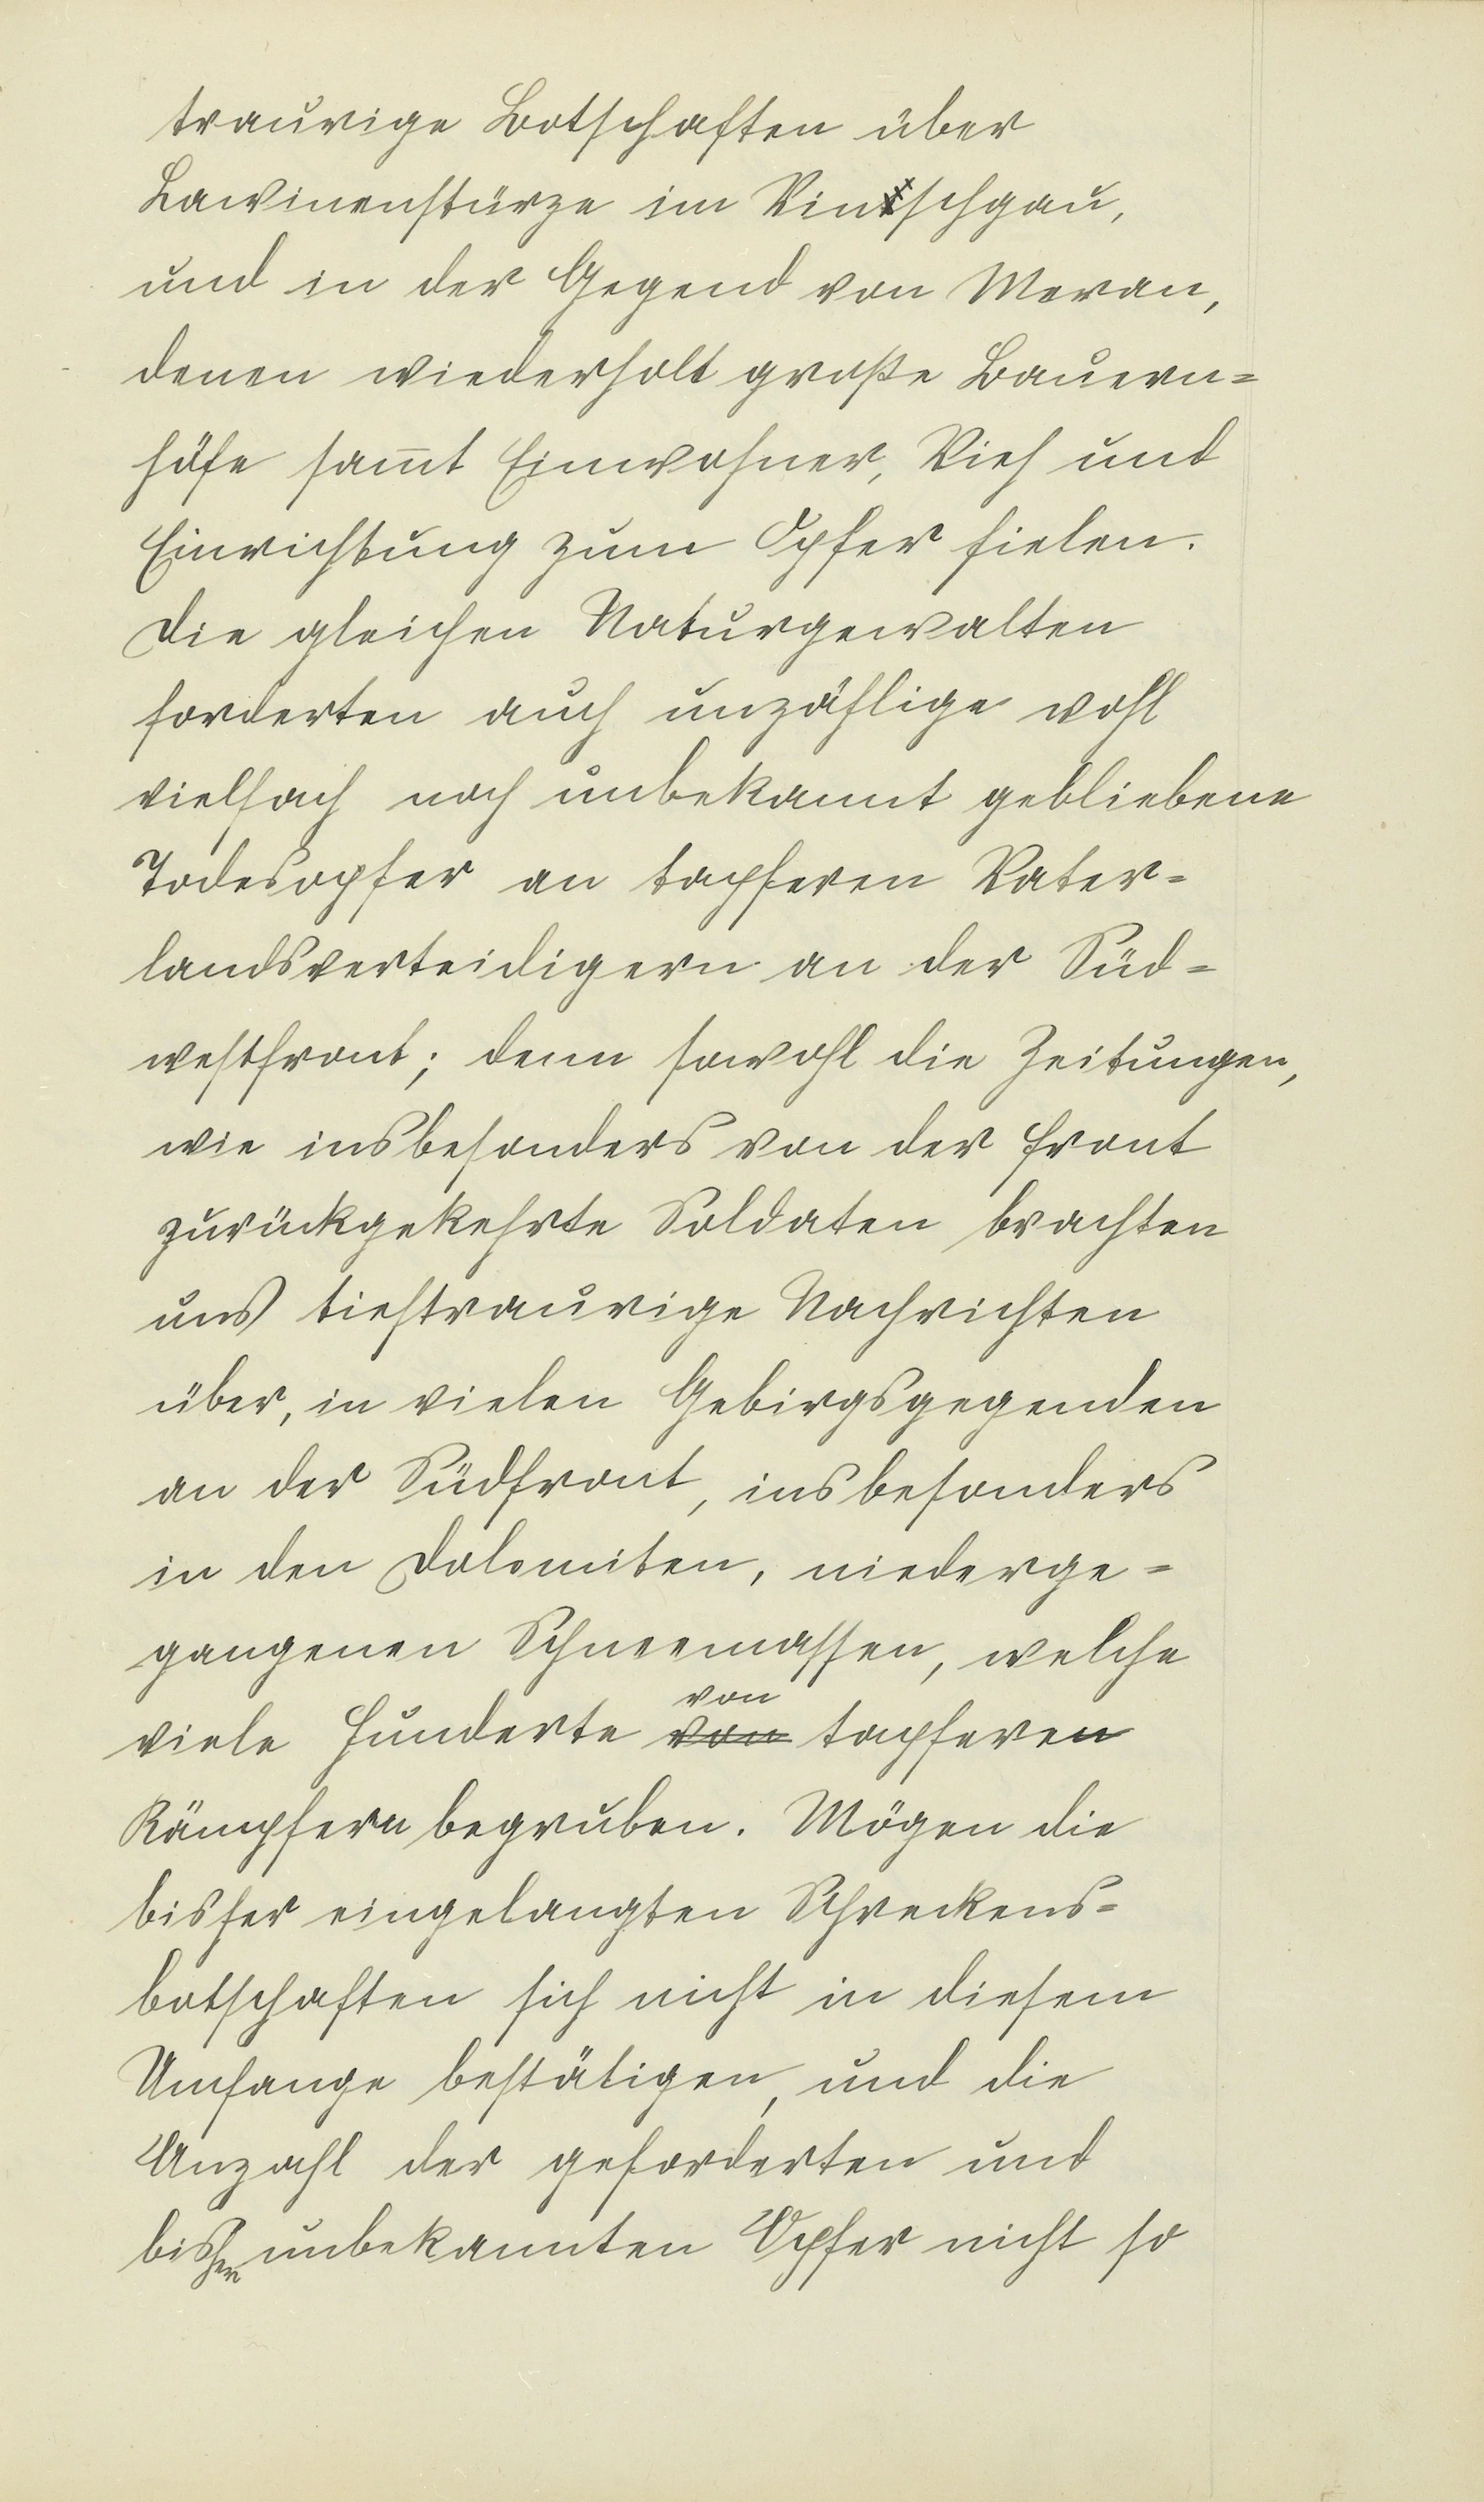 traurige Botschaften über
Lawinenstürze im Vintschgau,
und in der Gegend von Meran,
denen wiederholt große Bauern=
höfe sam̅t Einwohner, Vieh und
Einrichtung zum Opfer fielen.
Die gleichen Naturgewalten
forderten auch unzählige wohl
vielfach noch unbekannt gebliebene
Todesopfer an tapferen Vater=
landsverteidigern an der Süd=
westfront; denn sowohl die Zeitungen,
wie insbesonders von der Front
zurückgekehrte Soldaten brachten
uns tieftraurige Nachrichten
über, in vielen Gebirgsgegenden
an der Südfront, insbesonders
in den Dolomiten, niederge=
gangenen Schneemassen, welche
von
viele Hunderte von tapferen
Kämpfern begruben. Mögen die
bisher eingelangten Schreckens=
botschaften sich nicht in diesem
Umfange bestätigen, und die
Anzahl der geforderten und
bisher unbekannten Opfer nicht so